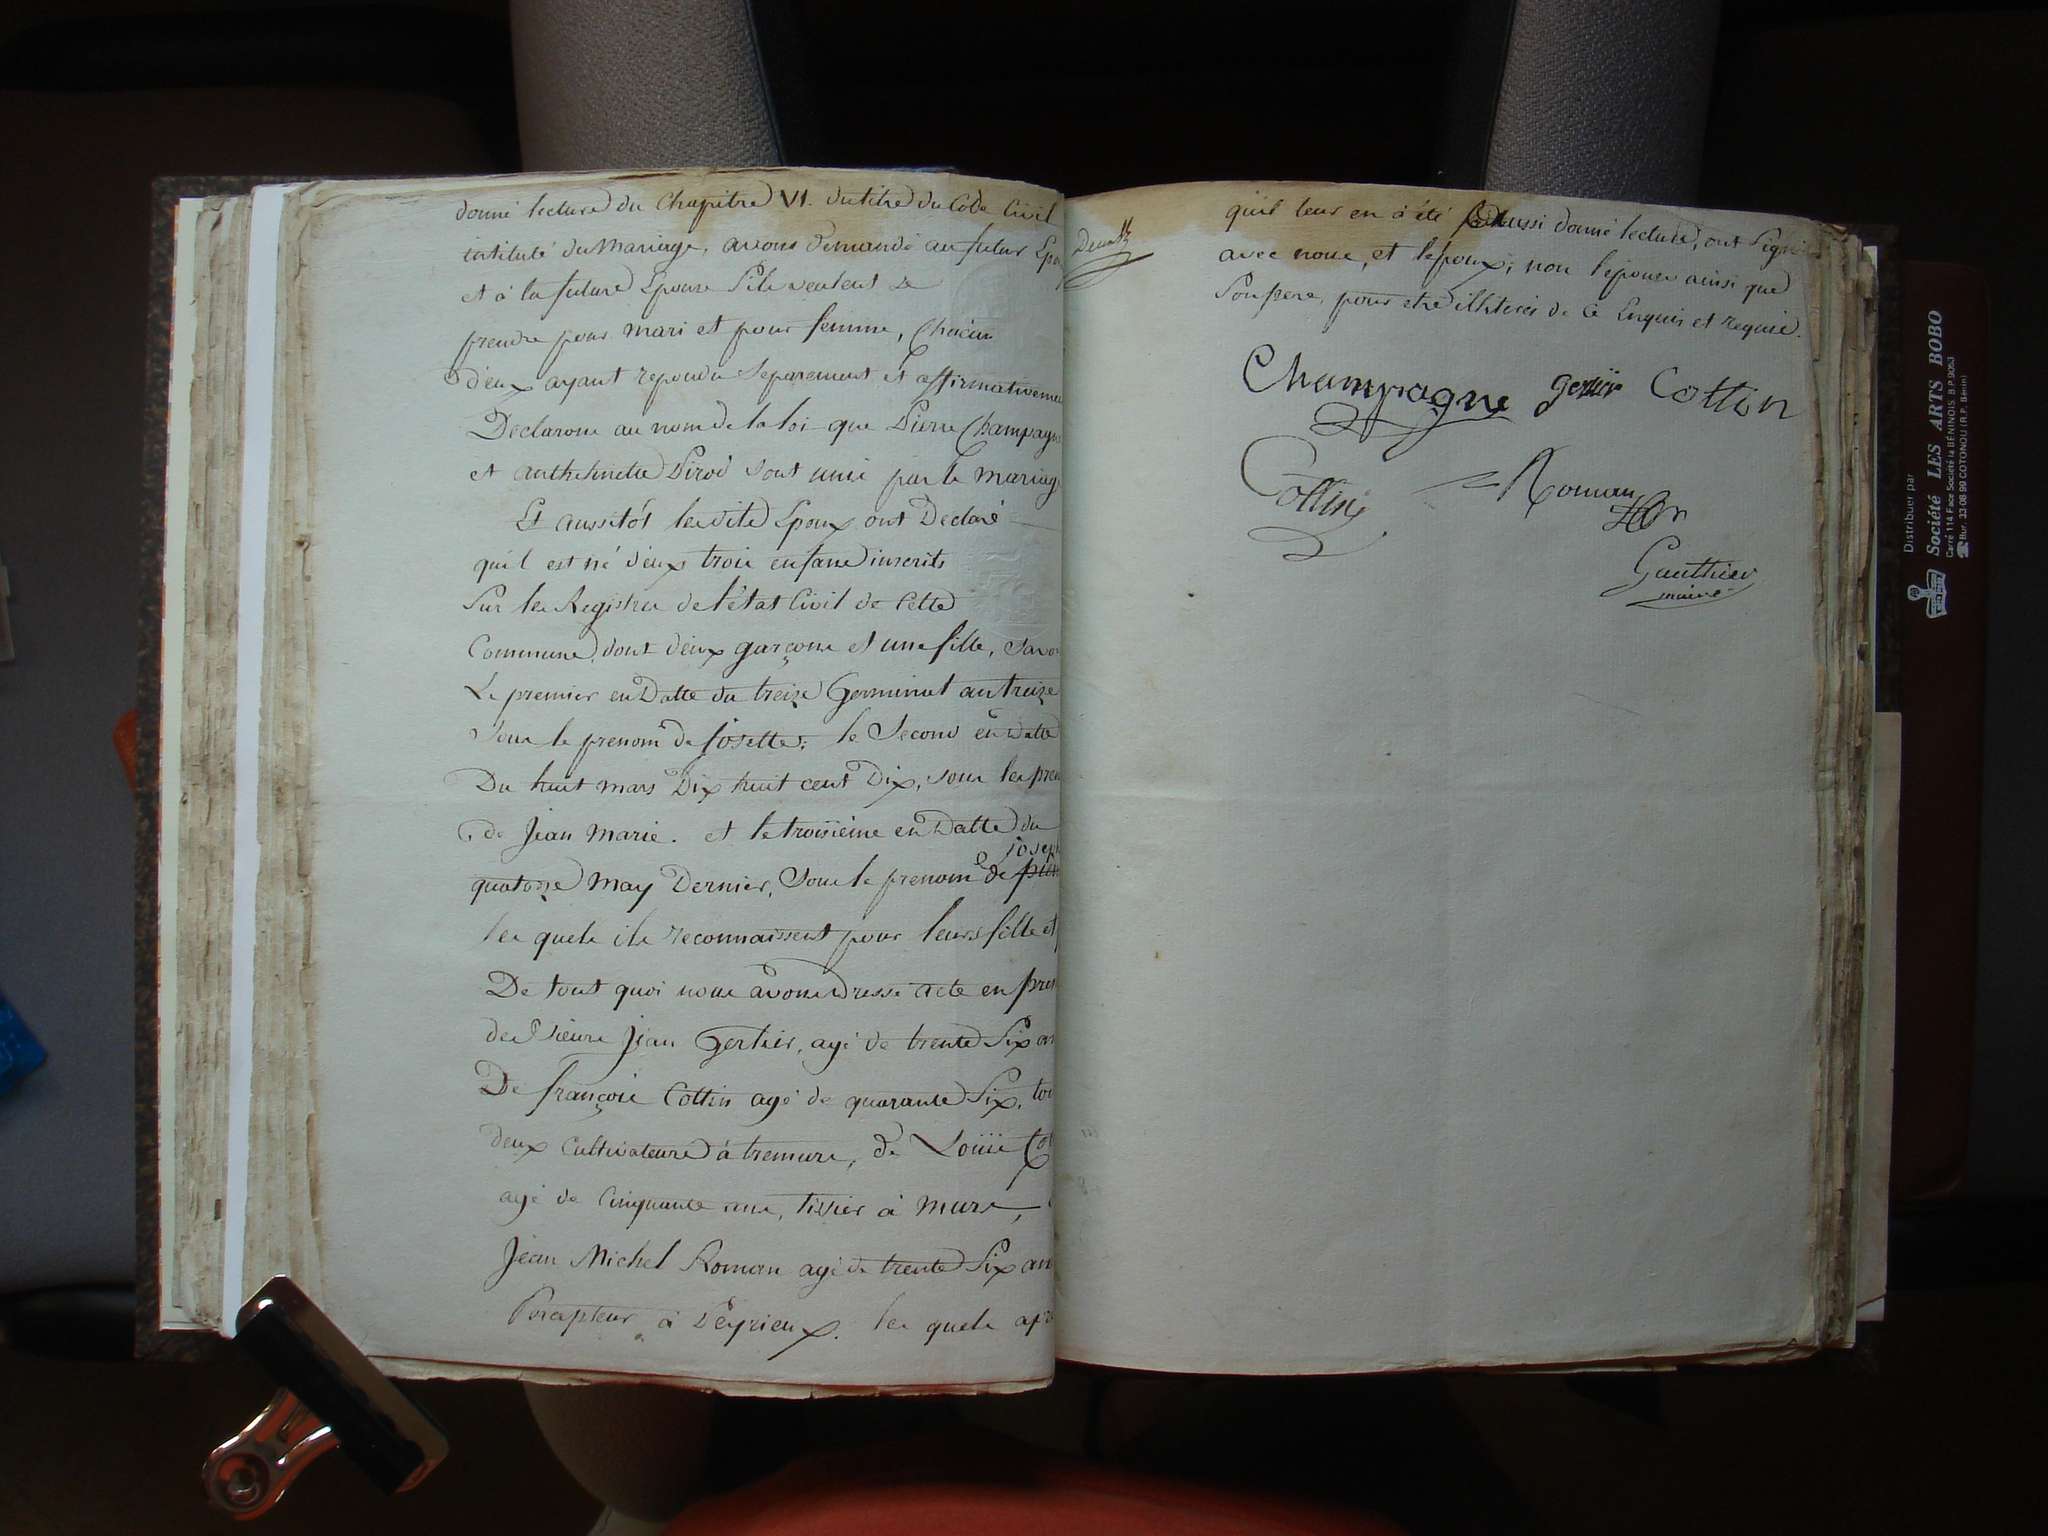 donné lecture du Chapitre VI. du titre du Code Civil
intitulé du Mariage, avons demandé au futur Epou
et à la future Epouse s'ils veulent se
prendre pour mari et pour femme, Chacun
d'eux ayant repondu Separement et affirmativeme
Declarons au nom de la loi que Pierre Champagne
et anthelmette Pirod sont unis par le mariage
Et aussitôt lesdits Epoux ont Declaré
qu'il est né d'eux trois enfans inscrits
Sur les Registres de l'état Civil de Cette
Commune, dont deux garçons et une fille, Savo
Le premier en Datte du treize Germinal an treize
Sous le prenom de Josette; le Second en Datte
Du huit mars Dix huit cent Dix, sous les pren
de Jean Marie. et le troisième en Datte du
joseph
quatorze May Dernier, Sous le prenom de
les quels ils reconnaissent pour leurs fille et
De tout quoi nous avons dressé acte en pres
des Sieurs Jean Gertier, agé de trente Six an
De françois Cottin agé de quarante Six, tou
deux Cultivateurs à tremurs, de Louis Cot
agé de Cinquante ans, tissier à murs,
Jean Michel Roman agé de trente Six an
Percepteur à Peyrieux. les quels apr
qu'il leur en a été aussi donné lecture, ont Signé
avec nous, et l'epoux; non l'epouse ainsi que
Son pere, pour etre illiterés de Ce Enquis et requis.
Champagne gertier Cottin
Cottin Roman
Gauthier
maire
Distribuer par
Société LES ARTS BOBO
Carré 114 Face Société la BÉNINOIS. B.P. 9053
☎ Bur. 33 08 99 COTONOU (R.P. Benin)